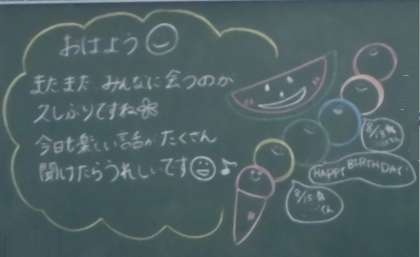 おはよう
またまた みんなに会うのが
久しぶりですね
今日も楽しいお話が たくさん
聞けたらうれしいです
HAPPY BIRTHDAY
くん
くん